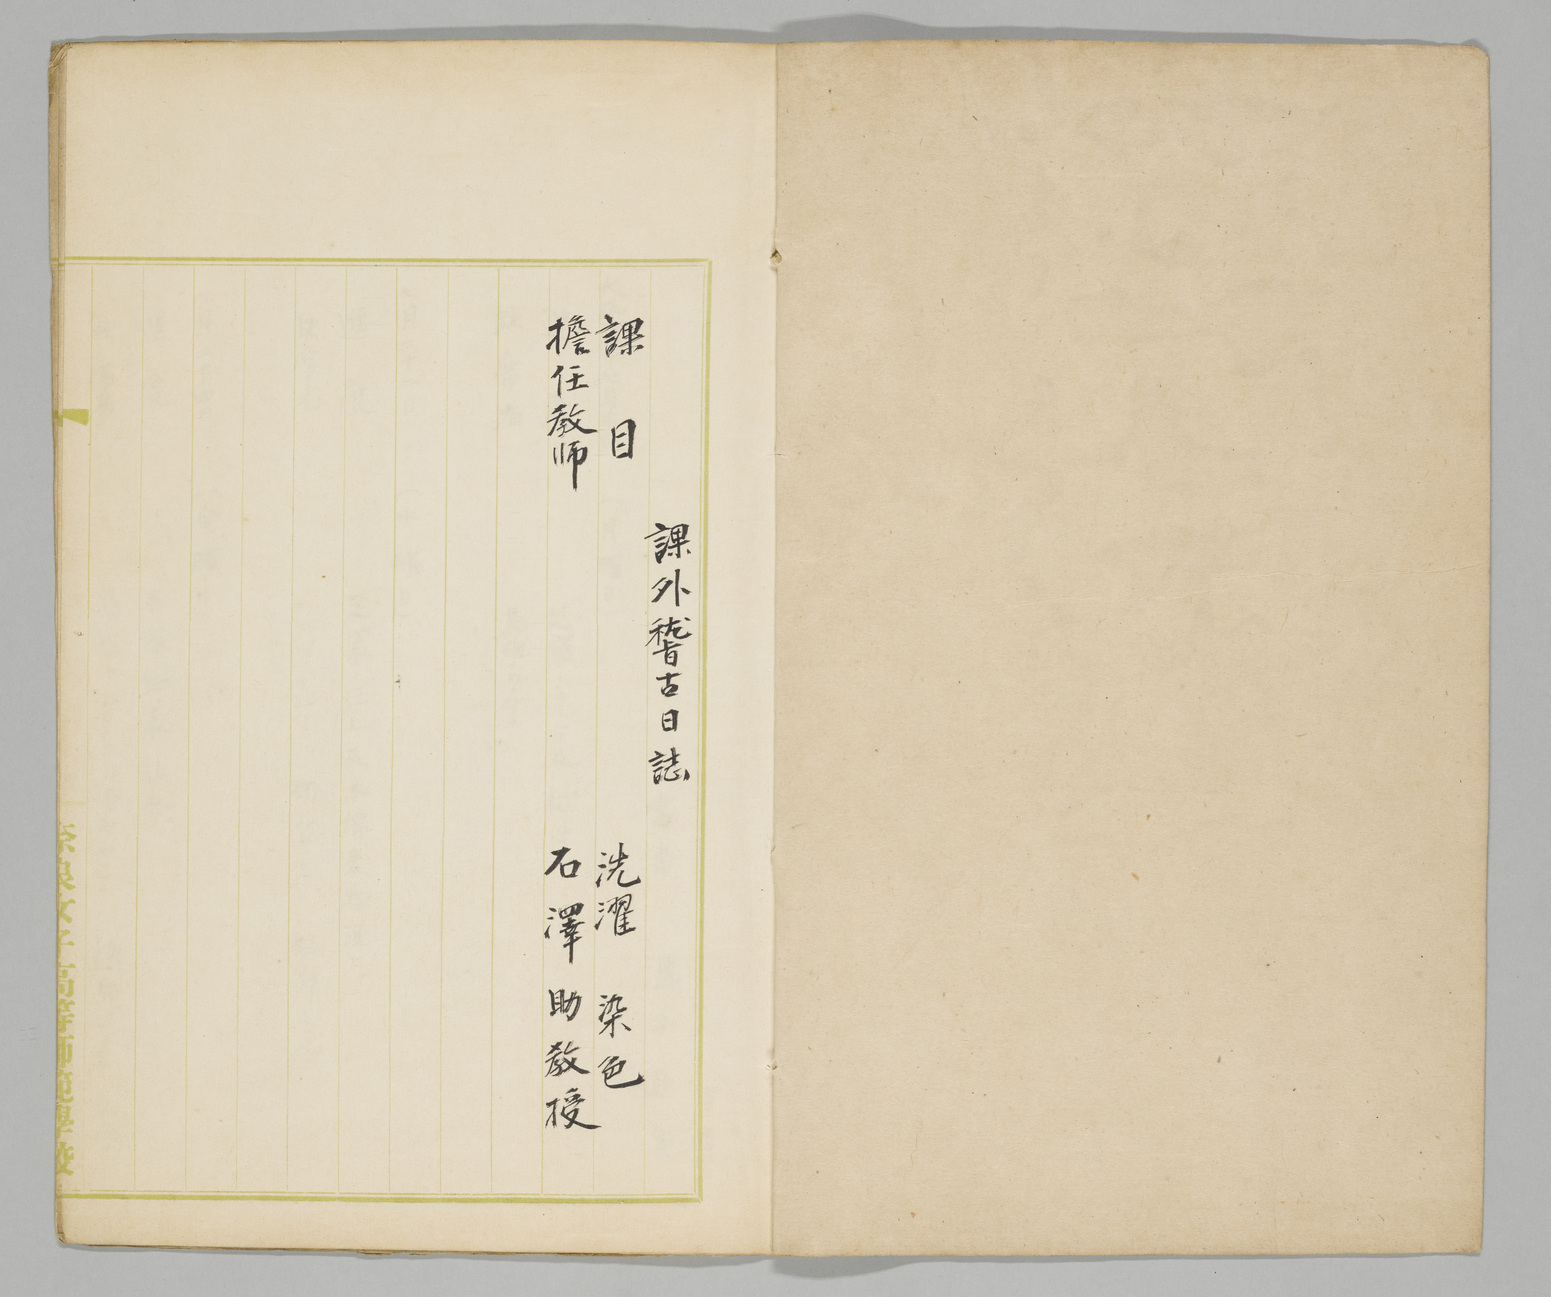 課外稽古日誌
課目 洗濯 染色
擔任教師 石澤助教授
奈良女子高等師範學校